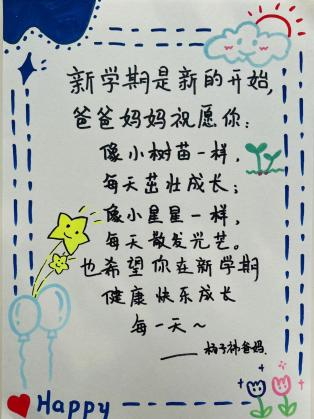 新学期是新的开始,
爸爸妈妈祝愿你:
像小树苗一样,
每天茁壮成长;
像小星星一样,
每天散发光芒。
也希望你在新学期
健康快乐成长
每一天~
——杨子祎爸妈.
Happy